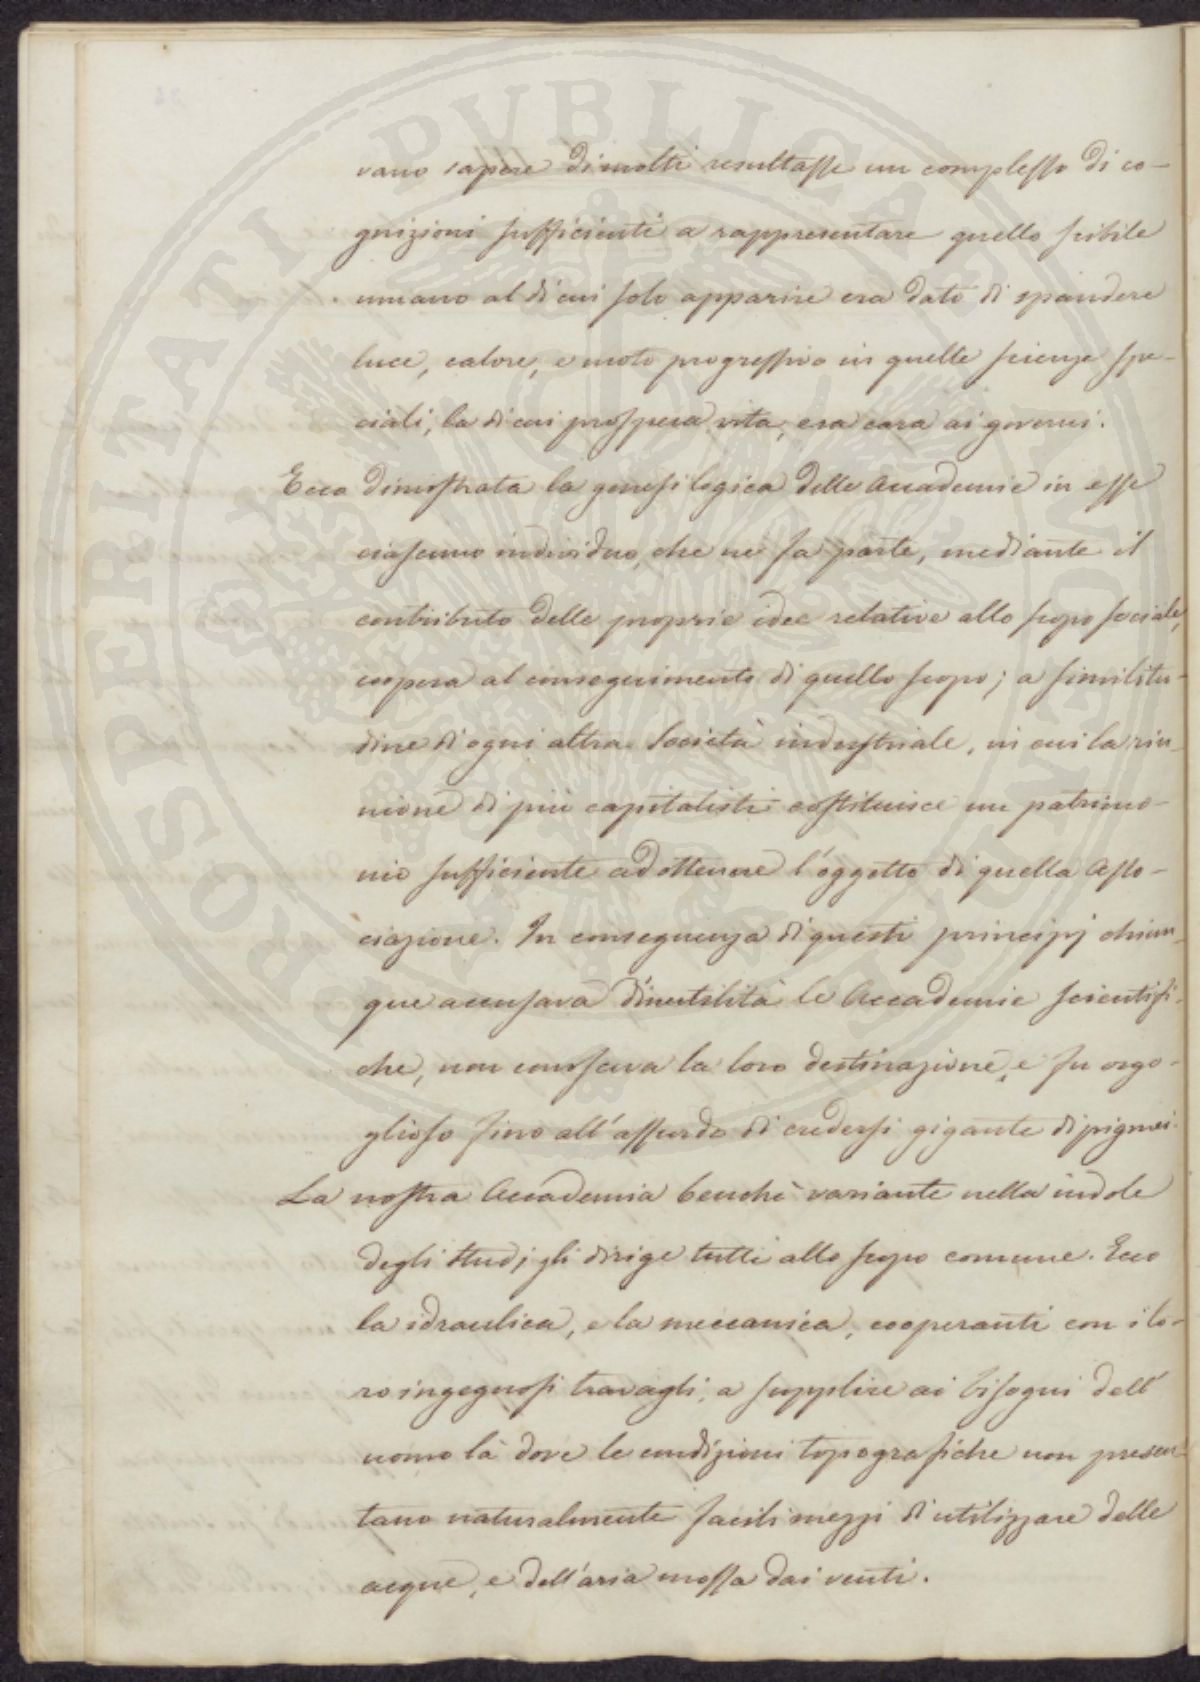 PROSPERITATI PVBLICAE AVGENDAE
vano sapere di molti resultasse un complesso di co-
gnizioni sufficienti a rappresentare quello scibile
umano al di cui solo apparire era dato di spandere
luce, calore, e moto progressivo in quelle scienze spe-
ciali, la di cui prospera vita, era cara ai governi.
Ecco dimostrata la genesi logica delle Accademie in esse
ciascuno individuo, che ne fa parte, mediante il
contributo delle proprie idee relative allo scopo sociale,
coopera al conseguimento di quello scopo; a similitu-
dine di ogni altra Società industriale, in cui la riu-
nione di più capitalisti costituisce un patrimo-
nio sufficiente ad ottenere l'oggetto di quella Asso-
ciazione. In conseguenza di questi principj chiun-
que accusava d'inutilità le Accademie scientifi-
che, non conosceva la loro destinazione, e fu orgo-
glioso fino all'assurdo di credersi gigante di pigmei.
La nostra Accademia benchè variante nella indole
degli studj gli dirige tutti allo scopo comune. Ecco
la idraulica, e la meccanica, cooperanti con i lo-
ro ingegnosi travagli, a supplire ai bisogni dell'
uomo là dove le condizioni topografiche non presen-
tano naturalmente facili mezzi di utilizzare delle
acque, e dell'aria mossa dai venti.